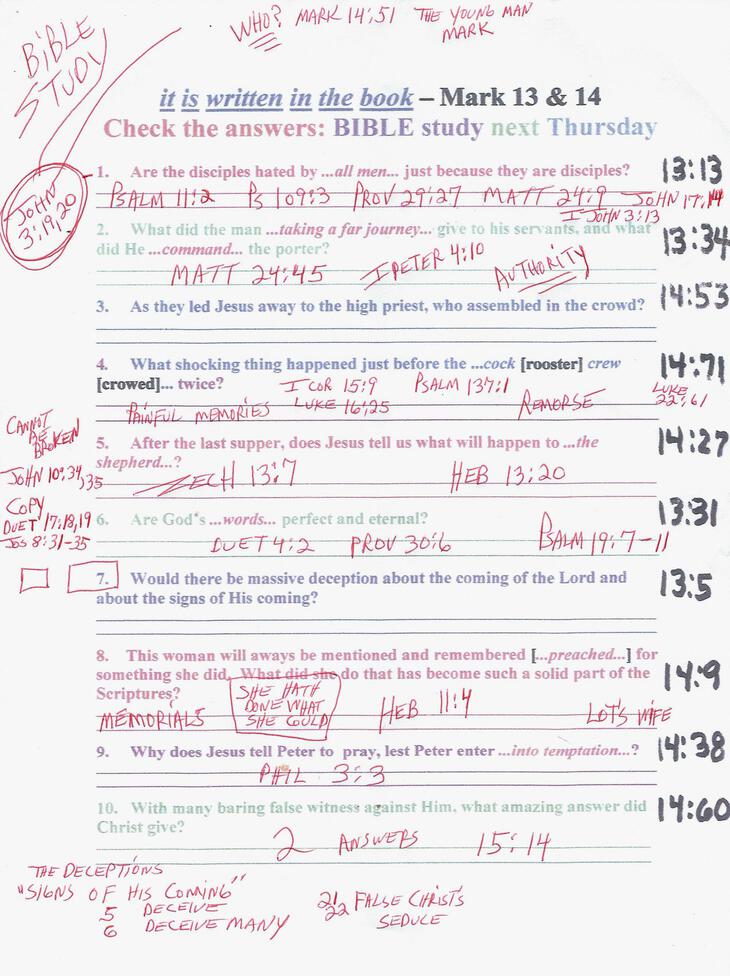 WHO? MARK 14:51 THE YOUNG MAN
MARK
BIBLE
STUDY
it is written in the book – Mark 13 & 14
Check the answers: BIBLE study next Thursday
JOHN
3:19,20
1. Are the disciples hated by ...all men... just because they are disciples? 13:13
PSALM 11:2 PS 109:3 PROV 29:27 MATT 24:9 JOHN 17:14
I JOHN 3:13
2. What did the man ...taking a far journey... give to his servants, and what 13:34
did He ...command... the porter?
MATT 24:45 I PETER 4:10 AUTHORITY
3. As they led Jesus away to the high priest, who assembled in the crowd? 14:53
4. What shocking thing happened just before the ...cock [rooster] crew 14:71
[crowed]... twice? I COR 15:9 PSALM 137:1
PAINFUL MEMORIES LUKE 16:25 REMORSE LUKE
22:61
CANNOT
BE
BROKEN
JOHN 10:34,35
5. After the last supper, does Jesus tell us what will happen to ...the 14:27
shepherd...?
ZECH 13:7 HEB 13:20
COPY
DUET 17:18,19
JOS 8:31-35
6. Are God's ...words... perfect and eternal? 13:31
DUET 4:2 PROV 30:6 PSALM 19:7-11
7. Would there be massive deception about the coming of the Lord and 13:5
about the signs of His coming?
8. This woman will aways be mentioned and remembered [...preached...] for
something she did. What did she do that has become such a solid part of the 14:9
Scriptures?
SHE HATH
DONE WHAT
SHE COULD
MEMORIALS HEB 11:4 LOT'S WIFE
9. Why does Jesus tell Peter to pray, lest Peter enter ...into temptation...? 14:38
PHIL 3:3
10. With many baring false witness against Him, what amazing answer did 14:60
Christ give?
2 ANSWERS 15:14
THE DECEPTIONS
"SIGNS OF HIS COMING"
5 DECEIVE
6 DECEIVE MANY
21/22 FALSE CHRIST'S
SEDUCE